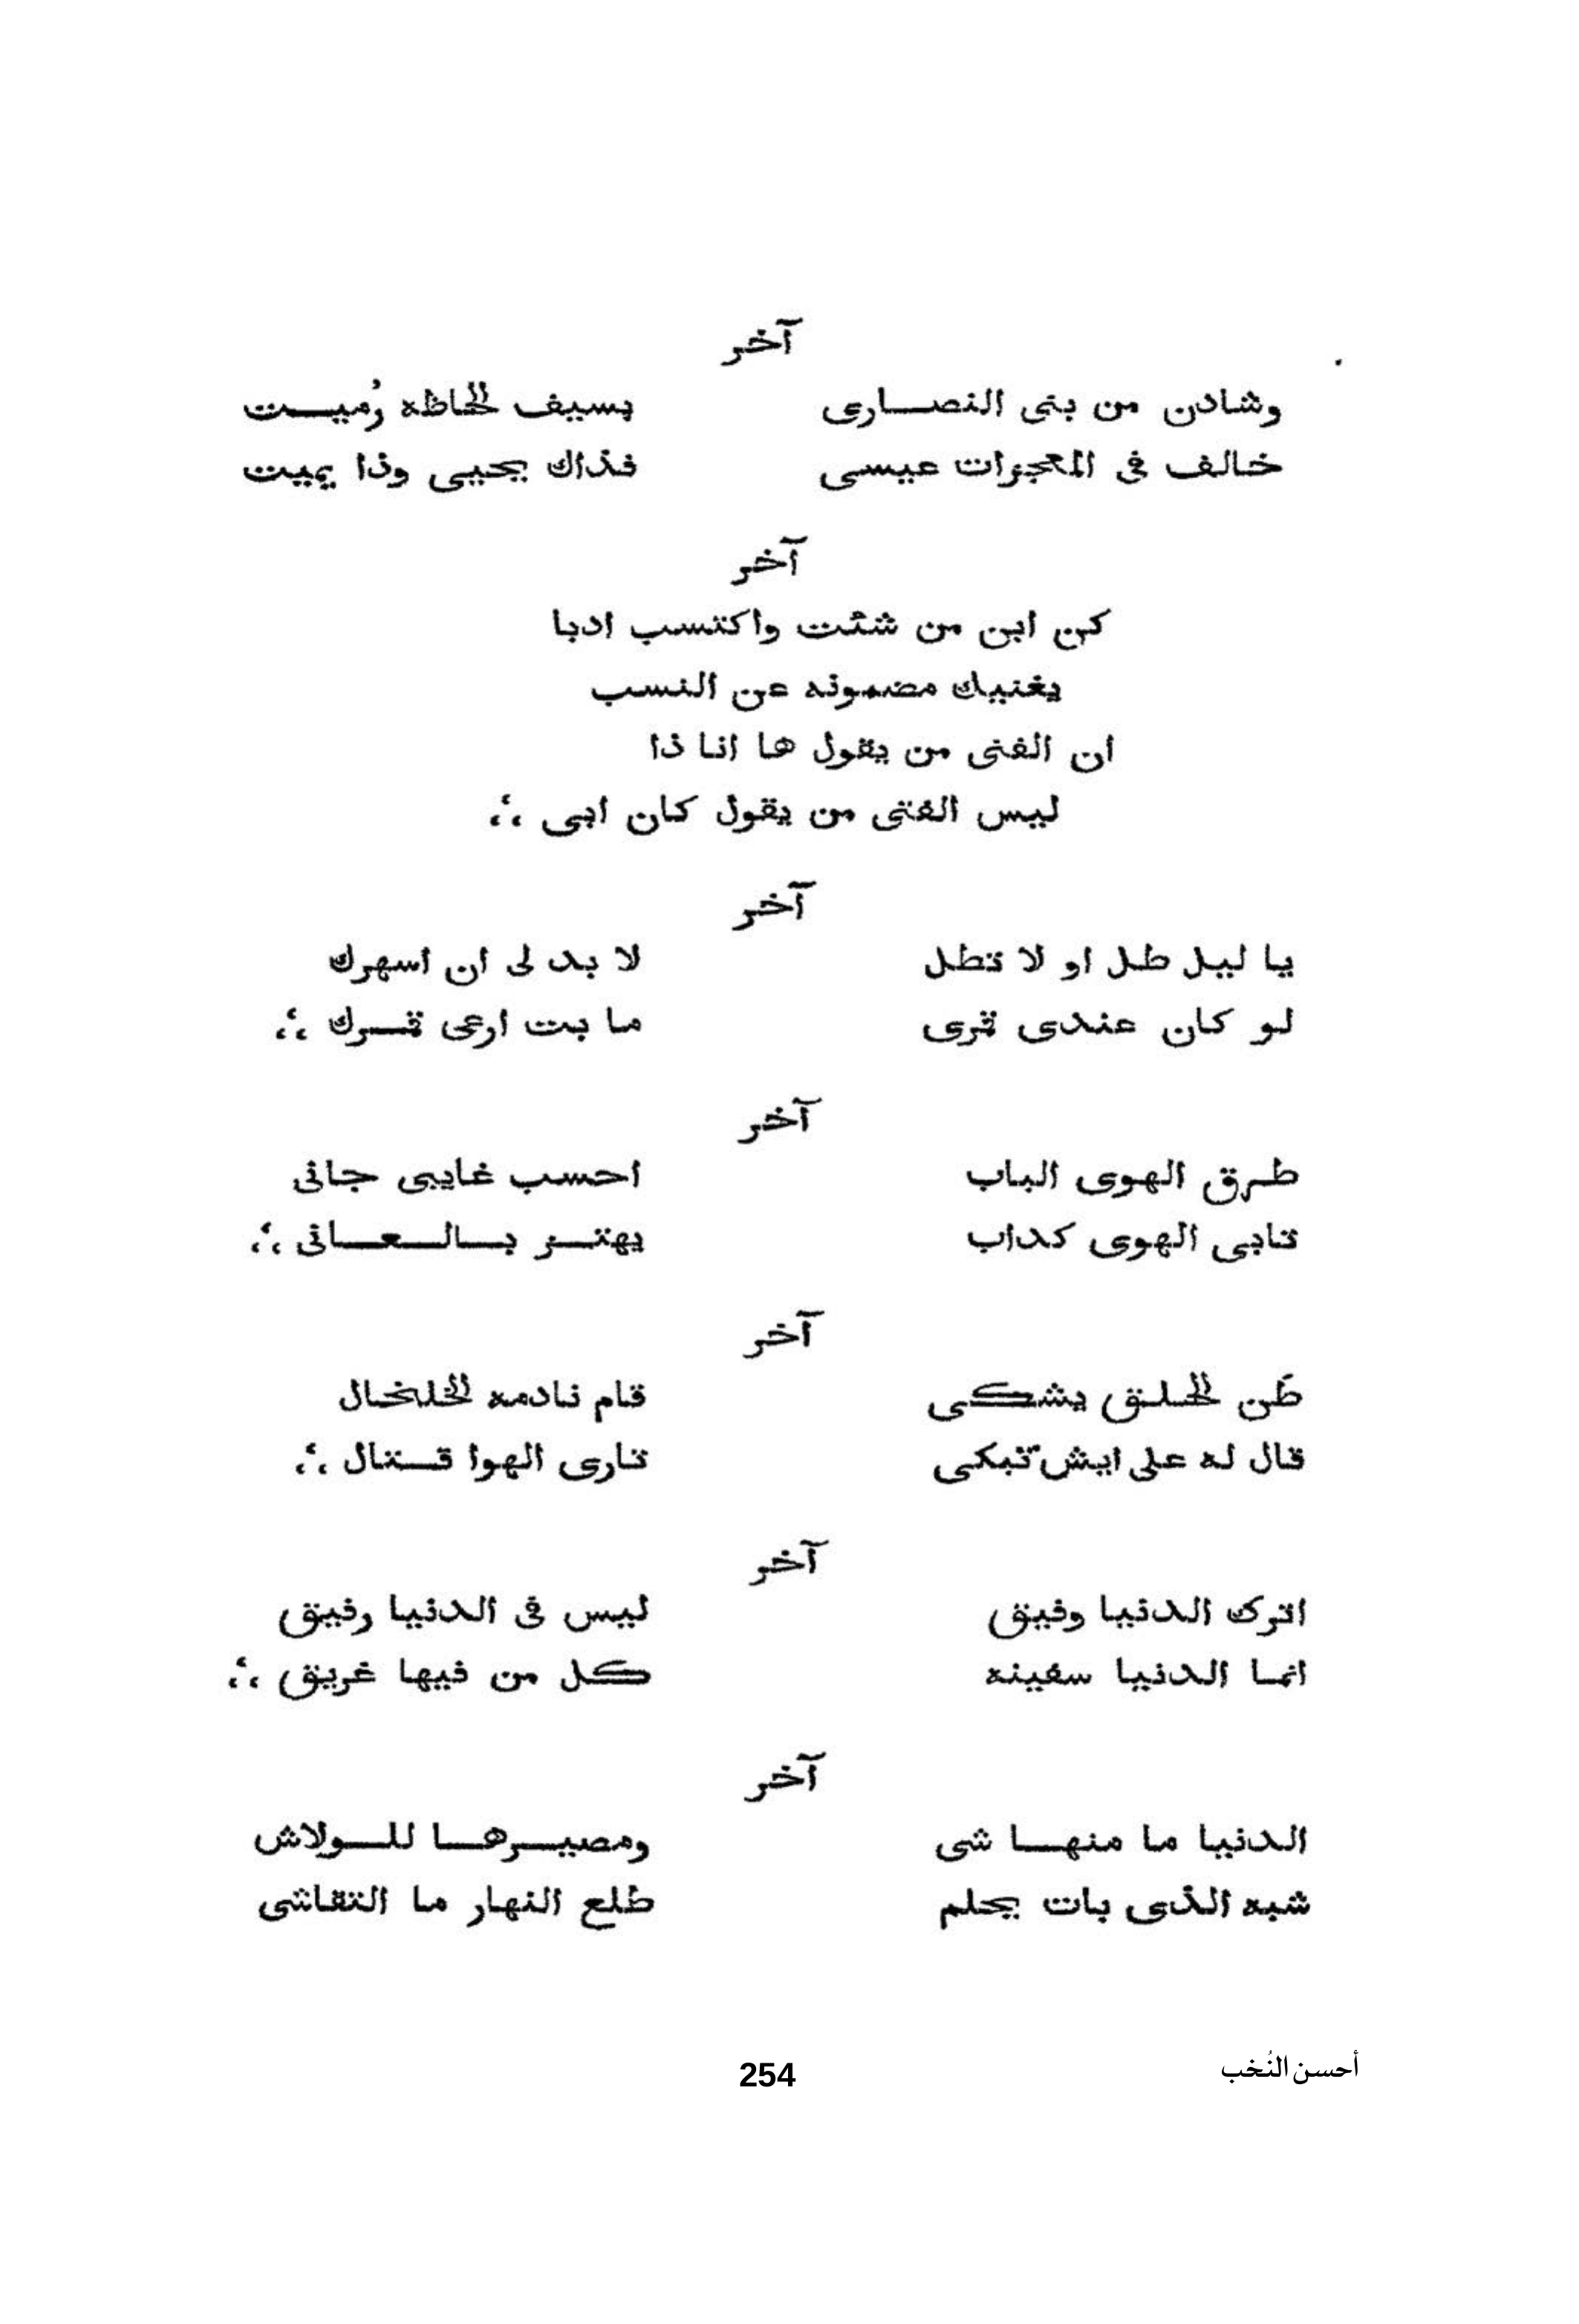 آخر
وشادن من بنى النصارى بسيف لحاظه رُميت
خالف فى المعجزات عيسى فذاك يحيى وذا يميت
آخر
كن ابن من شئت واكتسب ادبا
يغنيك مضمونه عن النسب
ان الفتى من يقول ها انا ذا
ليس الفتى من يقول كان ابى
آخر
يا ليل طل او لا تطل لا بد لى ان اسهرك
لو كان عندى قرى ما بت ارعى قرك
آخر
طرق الهوى الباب احسب غايبى جانى
تابى الهوى كداب يهتز بالعانى
آخر
ظَن الحلق يشكى قام نادمه الخلخال
قال له على ايش تبكى تارى الهوا قتال
آخر
اترك الدنيا وفيق ليس فى الدنيا رفيق
انما الدنيا سفينه كل من فيها غريق
آخر
الدنيا ما منها شى ومصيرها للولاش
شبه الذى بات يحلم طلع النهار ما التقاشى
أحسن النُخب
254